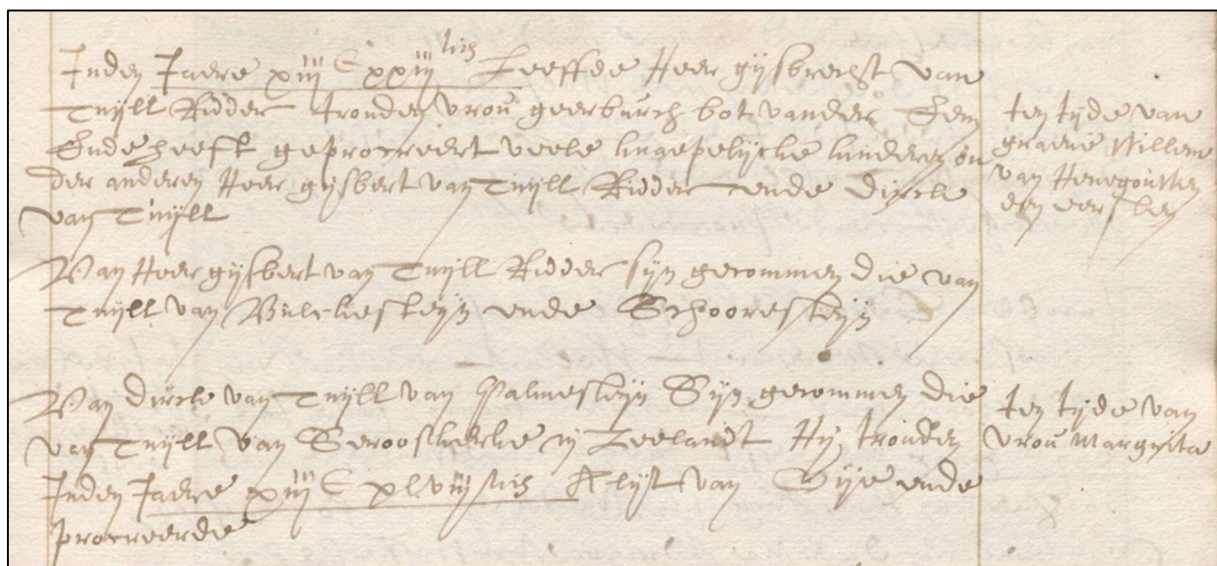 Inden Jaere xiij C xxiij tich Leeffde Heer gijsbrecht van
Tuijll Ridder trouden vrou geerburch bot vander Eem
Ende heeft geprocreert veele eerlycke kinderen on
der anderen Heer gijsbert van Tuijll Ridder ende dirck
van Tuijll
Van Heer gijsbert van Tuijll Ridder sijn gecommen die van
Tuijll van Bulckesteijn ende Schooresteijn
Van dirck van Tuijll van Palmesteijn Sijn gecommen die
van Tuijll van Serooskercke in Zeelandt Hij trouden
Inden Jaere xiij C xlviij tich Alijt van Gije ende
procreerde
ten tyde van
graeve Willem
van Henegouwen
den eersten
ten tyde van
vrou Margrita